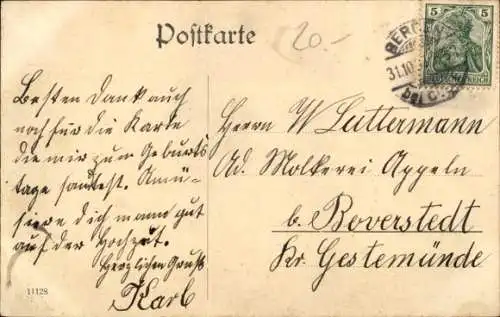 Postkarte
20.-
5
BERGEN
31.10
bei C
REICH
Besten Dank auch
noch für die Karte
die mir zum Geburts
tage sandtest. Amü-
siere dich mann gut
auf der Hochzeit.
Herzlichen Gruß
Karl
11128
Herrn W Luttermann
Ad. Molkerei Appeln
b. Beverstedt
Kr. Gestemünde